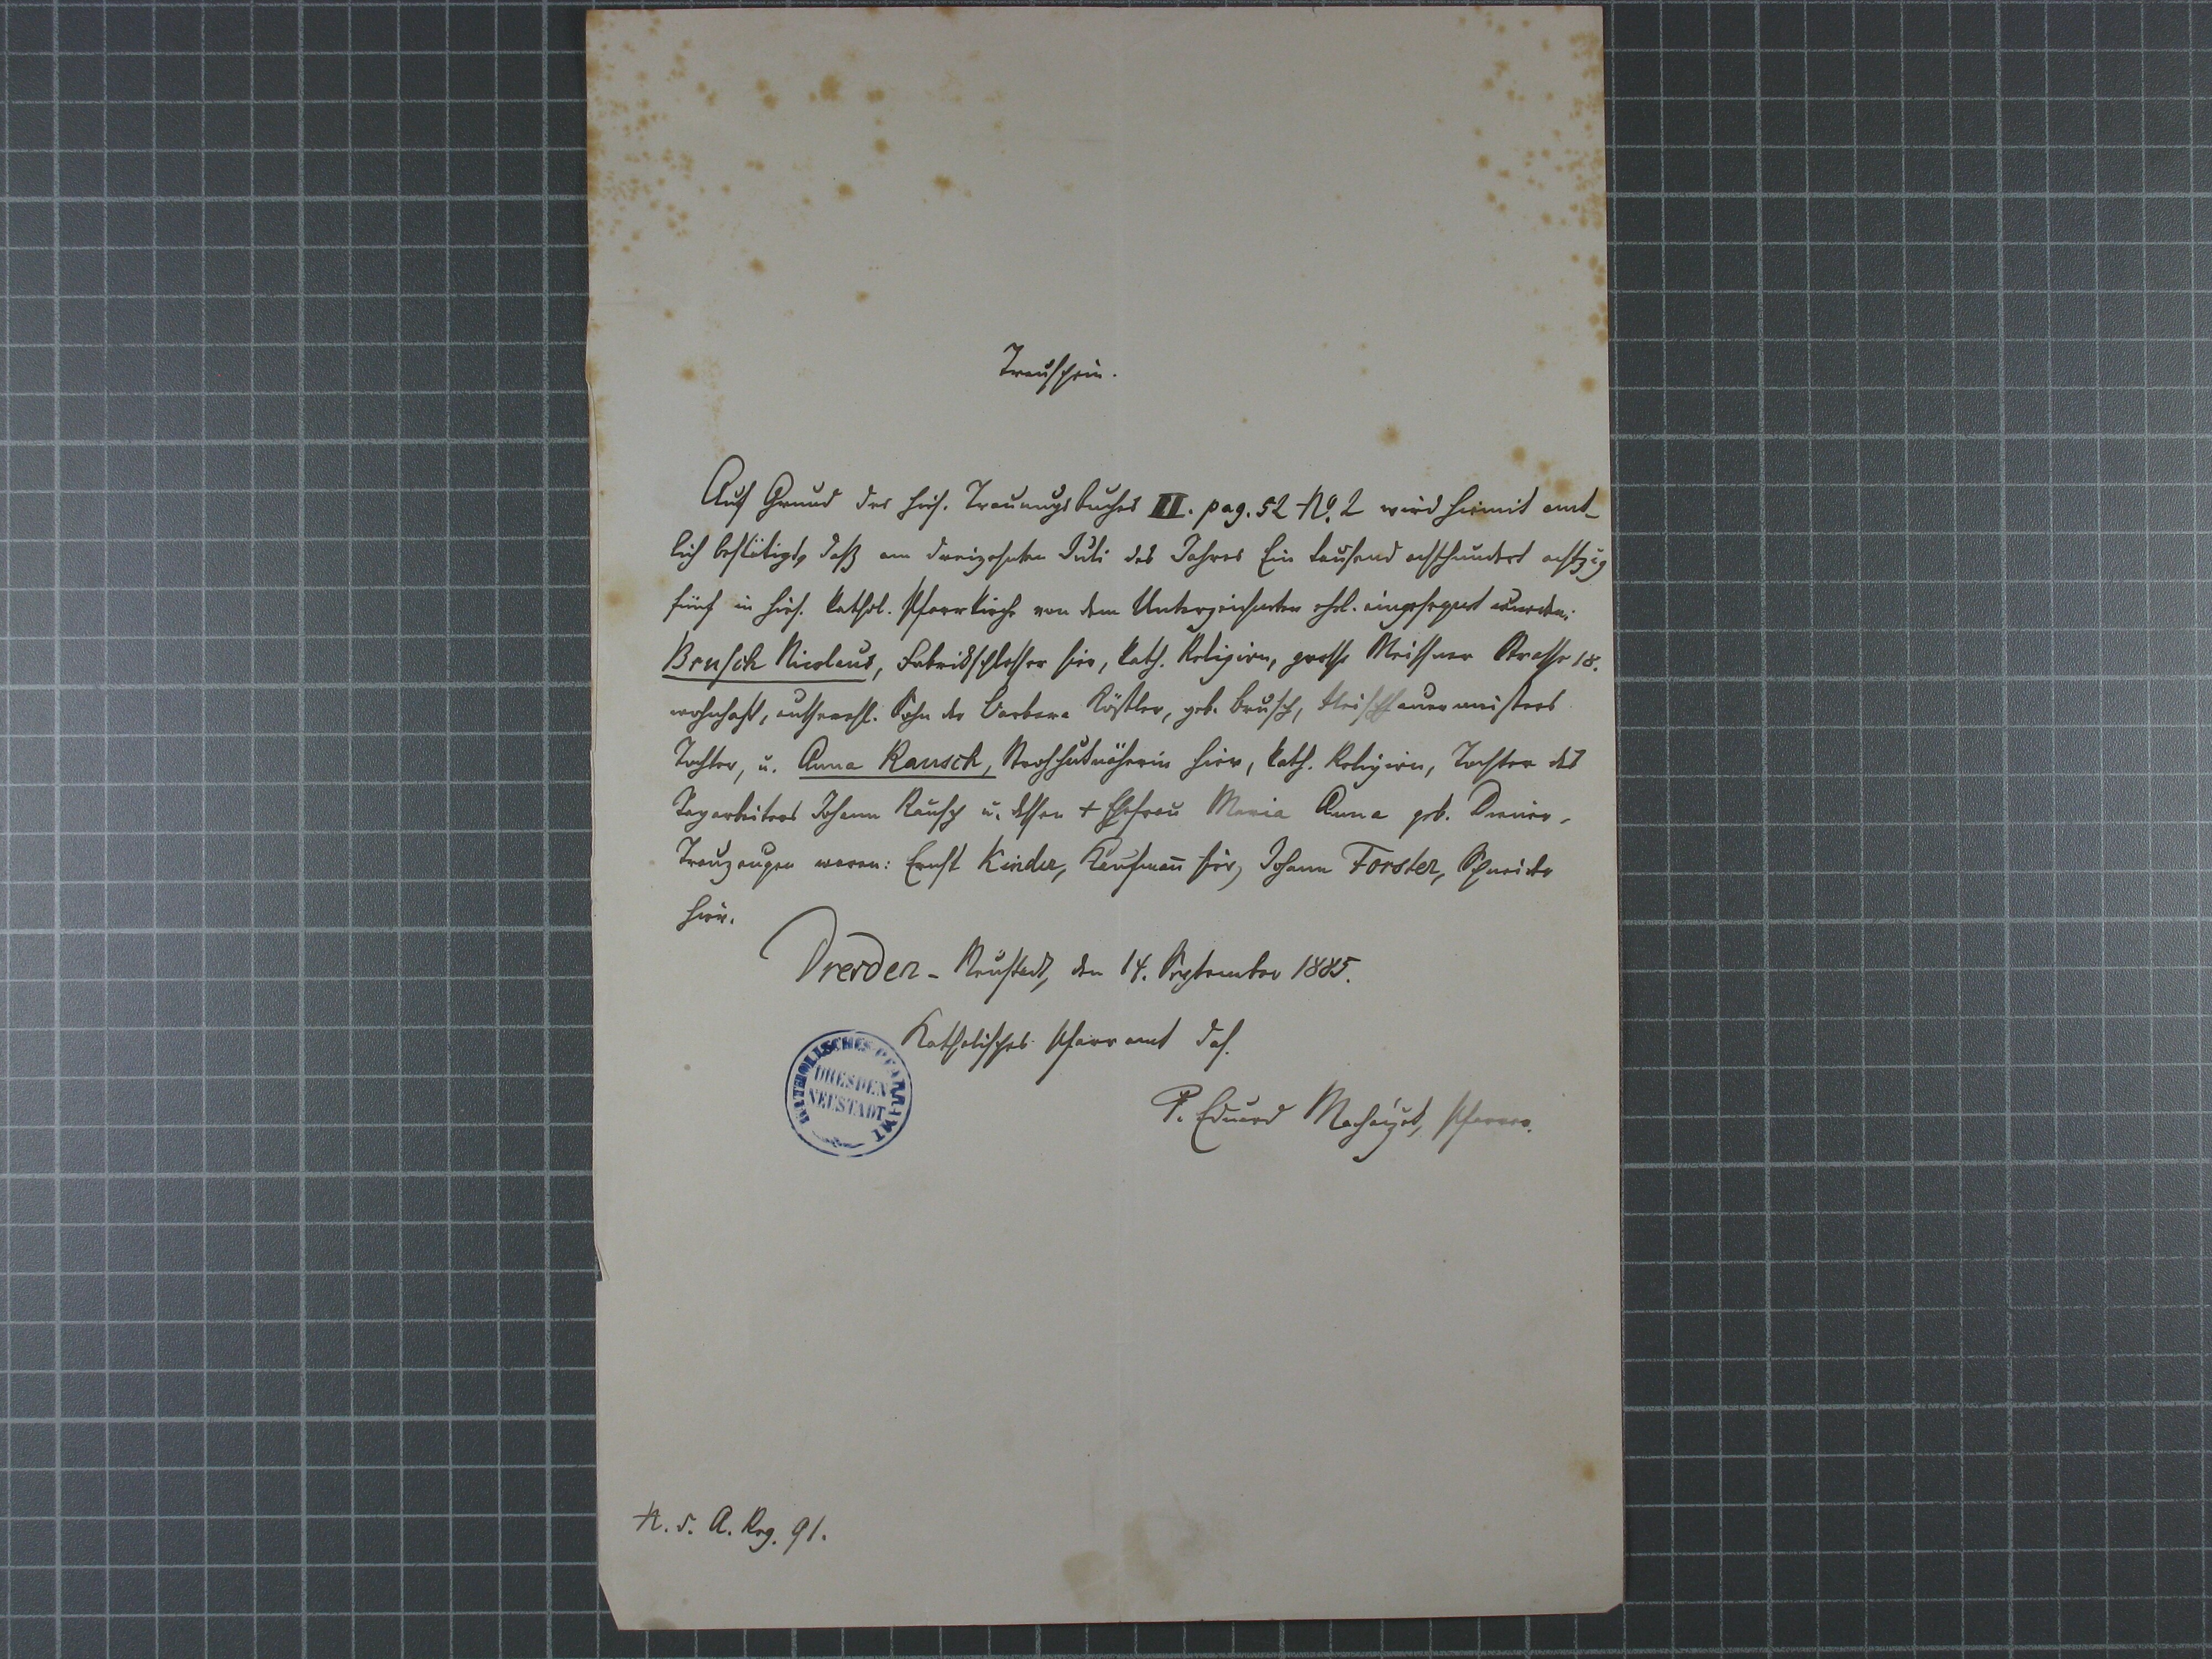 Trauschein.
Auf Grund des hies. Trauungsbuches II. pag. 52 No. 2 wird hiemit amt-
lich bestätigt, daß am dreizehnten Juli des Jahres Ein tausend achthundert achtzig
fünf in hies. kathol. Pfarrkirche von dem Unterzeichneten ehel. eingesegnet wurden:
Brusch Nicolaus, Fabrikschlosser hier, kath. Religion, grosse Meissner Strasse 18.
wohnhaft, außerehl. Sohn der Barbara Köstler, geb. Brusch, Fleischhauermeisters
Tochter, u. Anna Rausch, Strohhutnäherin hier, kath. Religion, Tochter des
Tagarbeiters Johann Rausch u. dessen + Ehefrau Maria Anna geb.
Trauzeugen waren: Ernst Kinder, Kaufmañ hier, Johann Forster, Schneider
hier.
Dresden-Neustadt, den 14. September 1885.
Katholisches Pfarramt das.
KATHOLISCHES PFARRAMT
DRESDEN
NEUSTADT
P. Eduard Machaczek, Pfarrer.
N. d. A. Reg. 91.